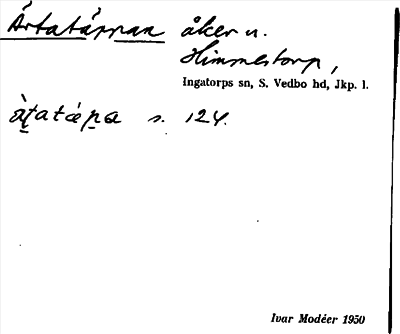 Ärtatäppan åker u.
Himmelstorp,
Ingatorps sn, S. Vedbo hd, Jkp. l.
s. 124.
Ivar Modéer 1950